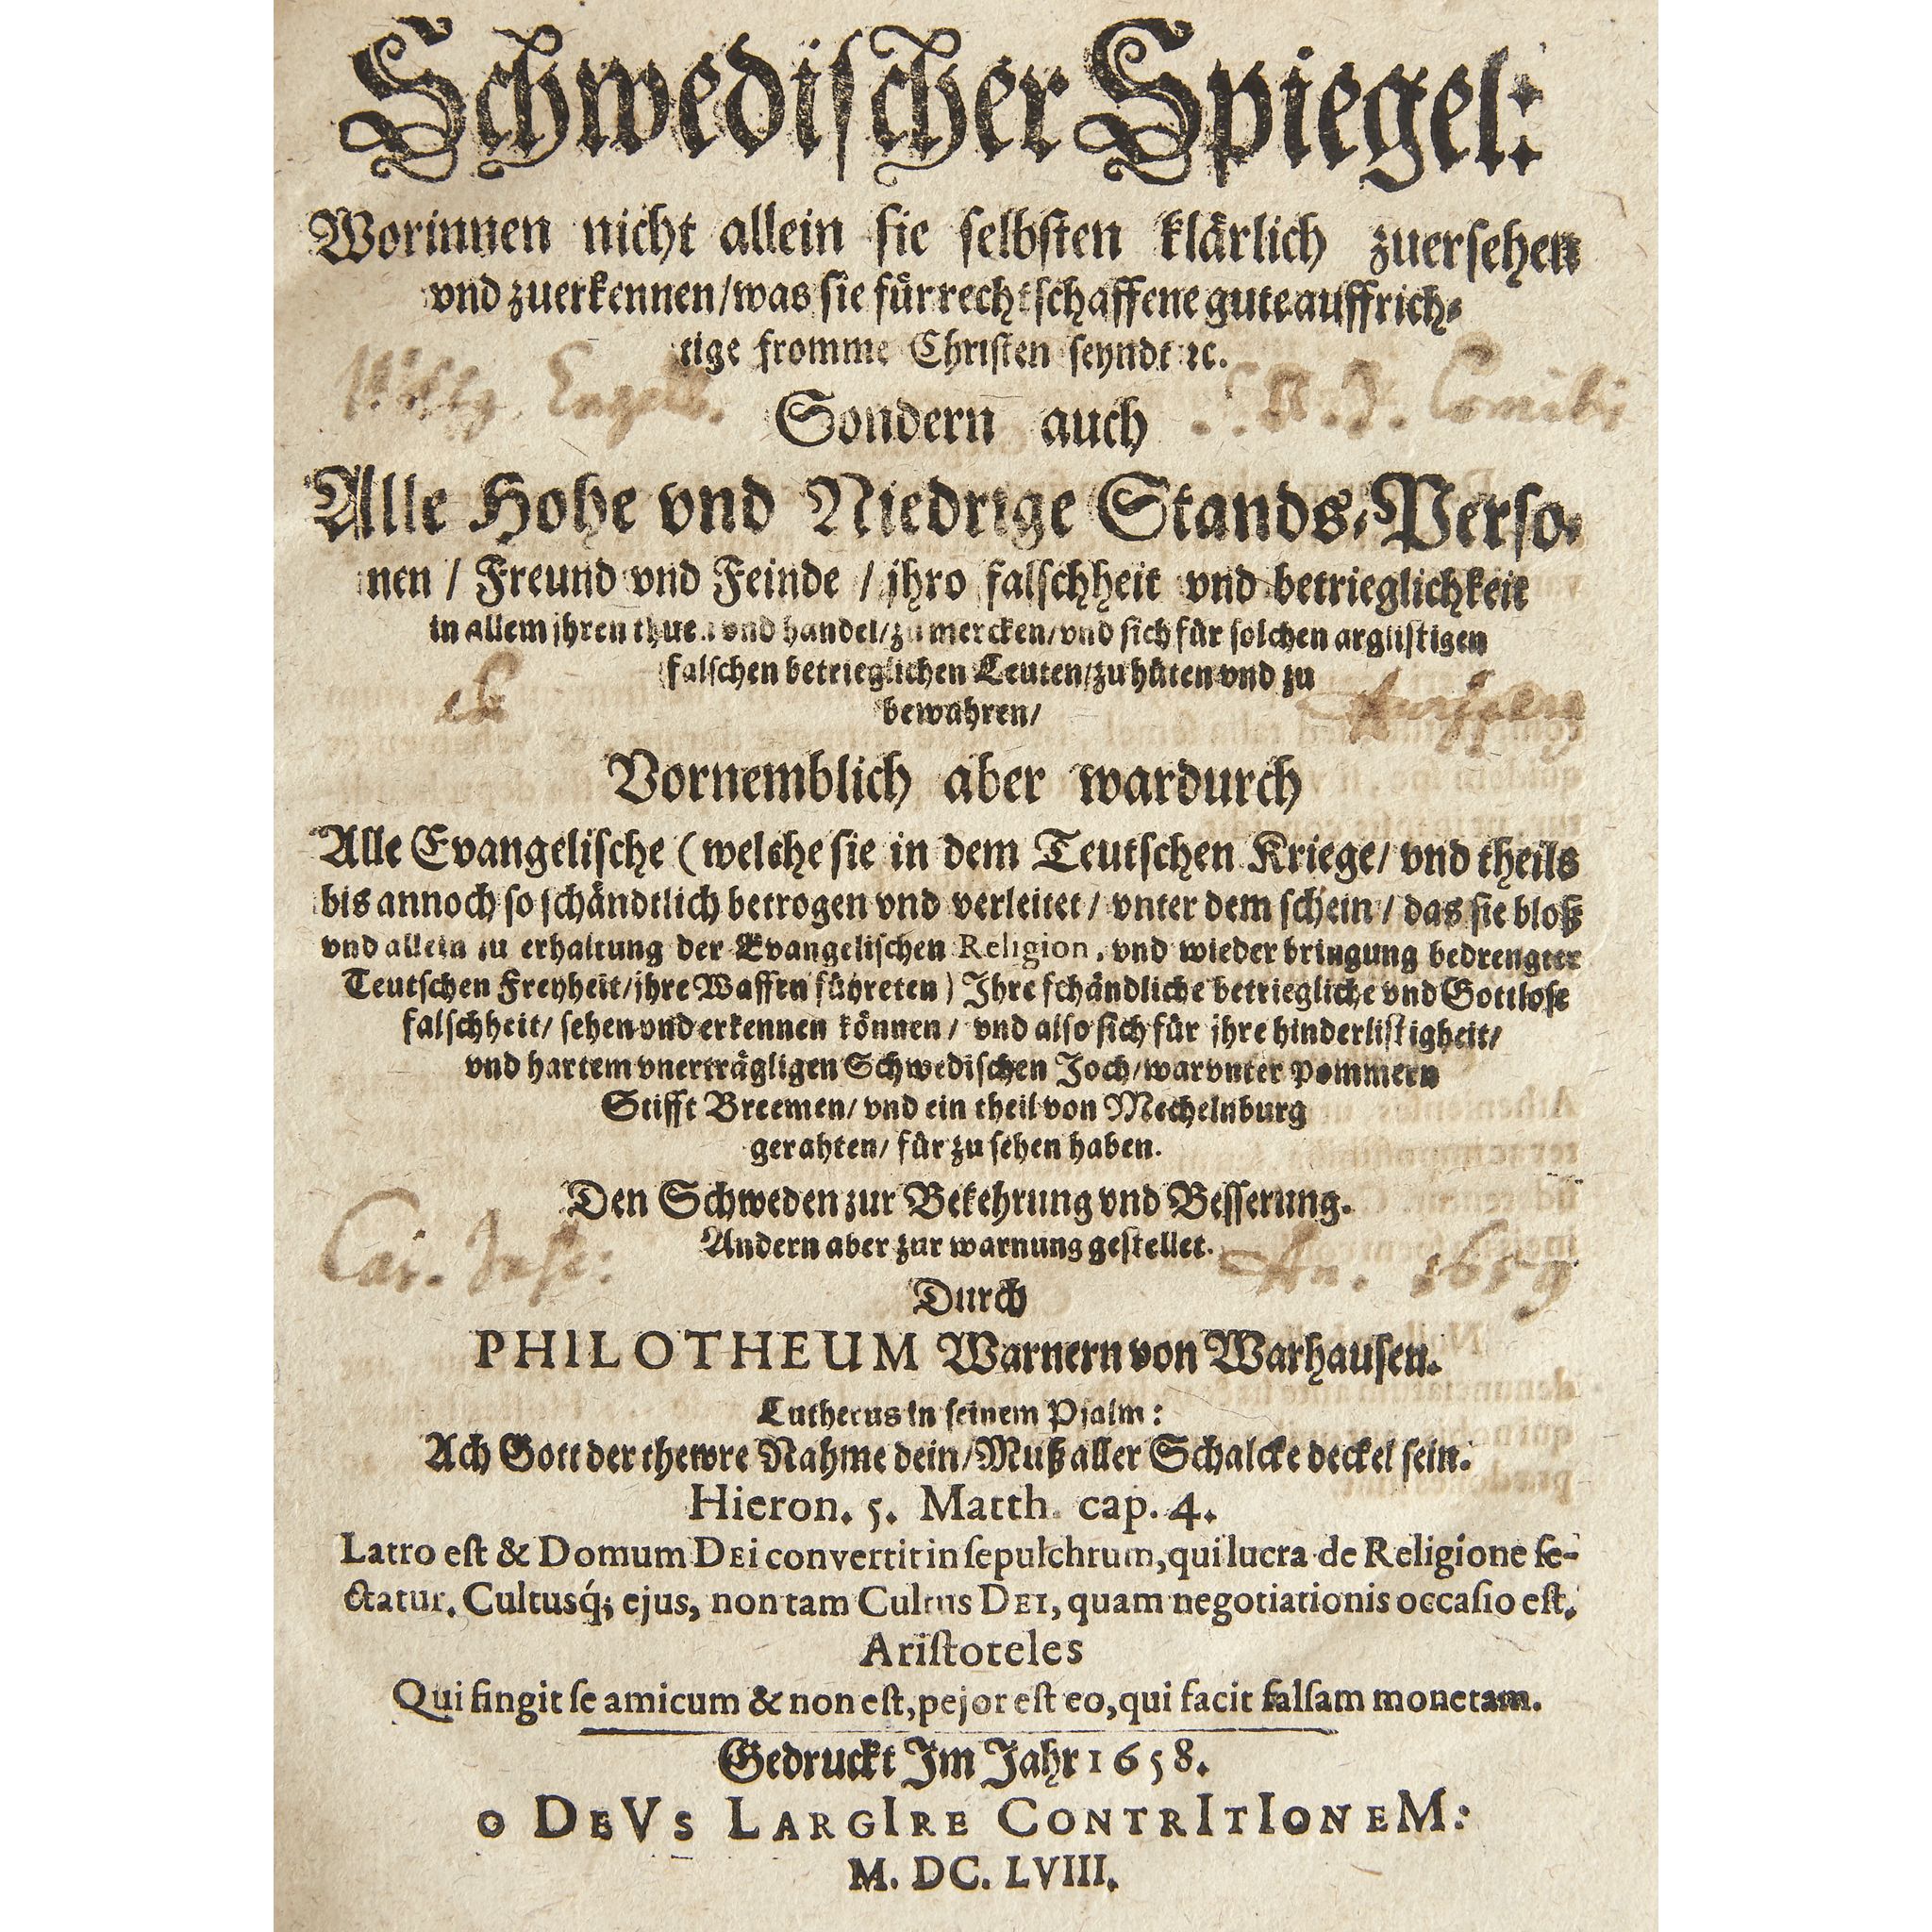 Schwedischer Spiegel:
Worinnen nicht allein sie selbsten klärlich zuersehen
vnd zuerkennen/was sie für rechtschaffene gute auffrich-
tige fromme Christen seyndt ꝛc.
Wolfg. Engelb. S. R. I. Comitis
Sondern auch
Alle Hohe vnd Niedrige Stands-Perso-
nen / Freund vnd Feinde / jhro falschheit vnd betrieglichkeit
in allem jhren thuen vnd handel/zu mercken/vnd sich für solchen arglistigen
falschen betrieglichen Leuten/zu hüten vnd zu
ab Aursperg
bewahren/
Vornemblich aber wardurch
Alle Evangelische (welche sie in dem Teutschen Kriege/ vnd theils
bis annoch so schändtlich betrogen vnd verleitet/ vnter dem schein/ das sie bloß
vnd allein zu erhaltung der Evangelischen Religion, vnd wieder bringung bedrengter
Teutschen Freyheit/jhre Waffen führeten) Ihre schändliche betriegliche vnd Gottlose
falschheit/ sehen vnd erkennen können/ vnd also sich für jhre hinderlistigheit/
vnd hartem vnerträgligen Schwedischen Joch/warvnter Pommern
Stifft Breemen/ vnd ein theil von Mechelnburg
gerahten/ für zu sehen haben.
Den Schweden zur Bekehrung vnd Besserung.
Andern aber zur warnung gestellet.
Cat. Inse: An. 1659
Durch
PHILOTHEUM Warnern von Warhausen.
Lutherus in seinem Psalm:
Ach Gott der thewre Nahme dein/Muß aller Schalcke deckel sein.
Hieron. 5. Matth. cap. 4.
Latro est & Domum DEi convertit in sepulchrum, qui lucra de Religione se-
ctatur. Cultusq́; ejus, non tam Cultus DEI, quam negotiationis occasio est.
Aristoteles
Qui fingit se amicum & non est, pejor est eo, qui facit falsam monetam.
Gedruckt Im Jahr 1658.
O DEVS LARGIRE CONTRITIONEM:
M. DC. LVIII.